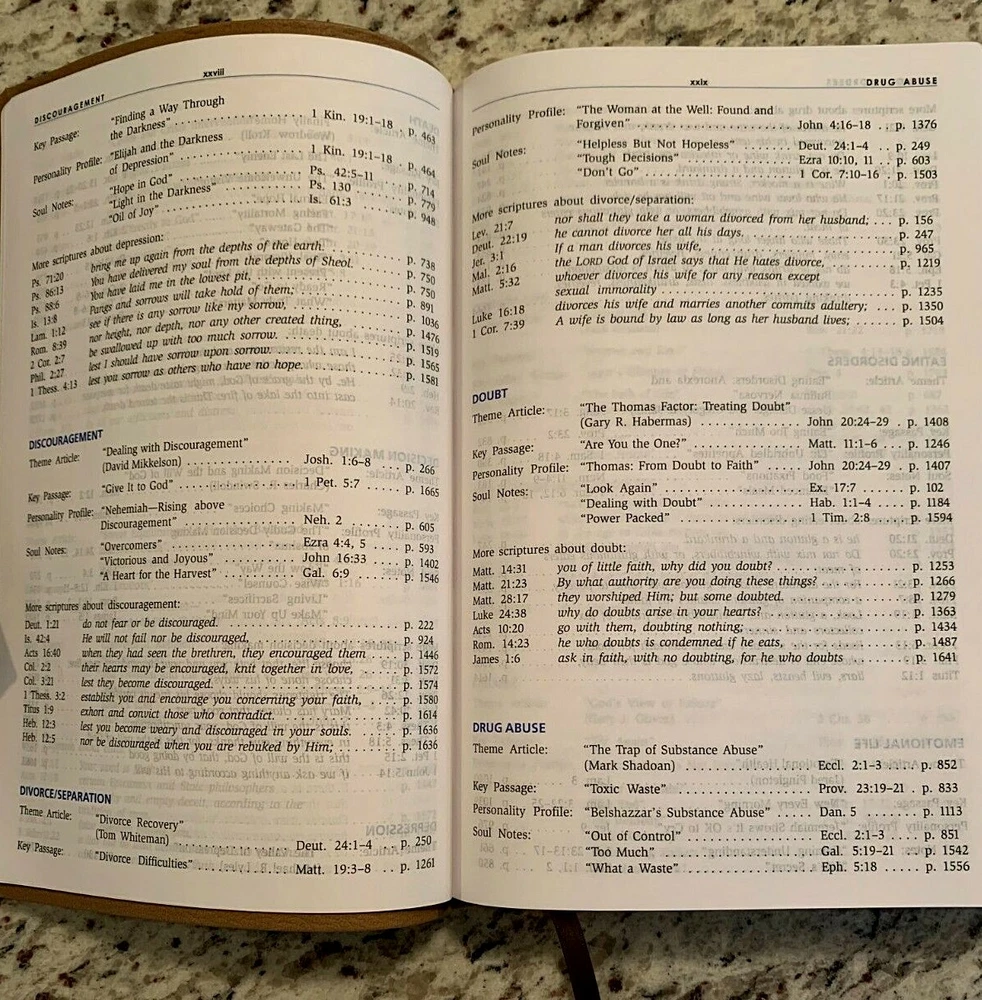 xxviii
DISCOURAGEMENT
Key Passage: "Finding a Way Through
the Darkness" 1 Kin. 19:1–18 p. 463
Personality Profile: "Elijah and the Darkness
of Depression" 1 Kin. 19:1–18 p. 464
Soul Notes: "Hope in God" Ps. 42:5-11 p. 714
"Light in the Darkness" Ps. 130 p. 779
"Oil of Joy" Is. 61:3 p. 948
More scriptures about depression:
Ps. 71:20 bring me up again from the depths of the earth. p. 738
Ps. 86:13 You have delivered my soul from the depths of Sheol. p. 750
Ps. 88:6 You have laid me in the lowest pit, p. 750
Is. 13:8 Pangs and sorrows will take hold of them; p. 891
Lam. 1:12 see if there is any sorrow like my sorrow, p. 1036
Rom. 8:39 nor height, nor depth, nor any other created thing, p. 1476
2 Cor. 2:7 be swallowed up with too much sorrow. p. 1519
Phil. 2:27 lest I should have sorrow upon sorrow. p. 1565
1 Thess. 4:13 lest you sorrow as others who have no hope. p. 1581
DISCOURAGEMENT
Theme Article: "Dealing with Discouragement"
(David Mikkelson) Josh. 1:6–8 p. 266
Key Passage: "Give It to God" 1 Pet. 5:7 p. 1665
Personality Profile: "Nehemiah—Rising above
Discouragement" Neh. 2 p. 605
Soul Notes: "Overcomers" Ezra 4:4, 5 p. 593
"Victorious and Joyous" John 16:33 p. 1402
"A Heart for the Harvest" Gal. 6:9 p. 1546
More scriptures about discouragement:
Deut. 1:21 do not fear or be discouraged. p. 222
Is. 42:4 He will not fail nor be discouraged, p. 924
Acts 16:40 when they had seen the brethren, they encouraged them p. 1446
Col. 2:2 their hearts may be encouraged, knit together in love, p. 1572
Col. 3:21 lest they become discouraged. p. 1574
1 Thess. 3:2 establish you and encourage you concerning your faith, p. 1580
Titus 1:9 exhort and convict those who contradict. p. 1614
Heb. 12:3 lest you become weary and discouraged in your souls. p. 1636
Heb. 12:5 nor be discouraged when you are rebuked by Him; p. 1636
DIVORCE/SEPARATION
Theme Article: "Divorce Recovery"
(Tom Whiteman) Deut. 24:1–4 p. 250
Key Passage: "Divorce Difficulties" Matt. 19:3–8 p. 1261
xxix
DRUG ABUSE
Personality Profile: "The Woman at the Well: Found and
Forgiven" John 4:16–18 p. 1376
Soul Notes: "Helpless But Not Hopeless" Deut. 24:1–4 p. 249
"Tough Decisions" Ezra 10:10, 11 p. 603
"Don't Go" 1 Cor. 7:10–16 p. 1503
More scriptures about divorce/separation:
Lev. 21:7 nor shall they take a woman divorced from her husband; p. 156
Deut. 22:19 he cannot divorce her all his days. p. 247
Jer. 3:1 If a man divorces his wife, p. 965
Mal. 2:16 the LORD God of Israel says that He hates divorce, p. 1219
Matt. 5:32 whoever divorces his wife for any reason except
sexual immorality p. 1235
Luke 16:18 divorces his wife and marries another commits adultery; p. 1350
1 Cor. 7:39 A wife is bound by law as long as her husband lives; p. 1504
DOUBT
Theme Article: "The Thomas Factor: Treating Doubt"
(Gary R. Habermas) John 20:24–29 p. 1408
Key Passage: "Are You the One?" Matt. 11:1–6 p. 1246
Personality Profile: "Thomas: From Doubt to Faith" John 20:24–29 p. 1407
Soul Notes: "Look Again" Ex. 17:7 p. 102
"Dealing with Doubt" Hab. 1:1–4 p. 1184
"Power Packed" 1 Tim. 2:8 p. 1594
More scriptures about doubt:
Matt. 14:31 you of little faith, why did you doubt? p. 1253
Matt. 21:23 By what authority are you doing these things? p. 1266
Matt. 28:17 they worshiped Him; but some doubted. p. 1279
Luke 24:38 why do doubts arise in your hearts? p. 1363
Acts 10:20 go with them, doubting nothing; p. 1434
Rom. 14:23 he who doubts is condemned if he eats, p. 1487
James 1:6 ask in faith, with no doubting, for he who doubts p. 1641
DRUG ABUSE
Theme Article: "The Trap of Substance Abuse"
(Mark Shadoan) Eccl. 2:1–3 p. 852
Key Passage: "Toxic Waste" Prov. 23:19–21 p. 833
Personality Profile: "Belshazzar's Substance Abuse" Dan. 5 p. 1113
Soul Notes: "Out of Control" Eccl. 2:1–3 p. 851
"Too Much" Gal. 5:19–21 p. 1542
"What a Waste" Eph. 5:18 p. 1556